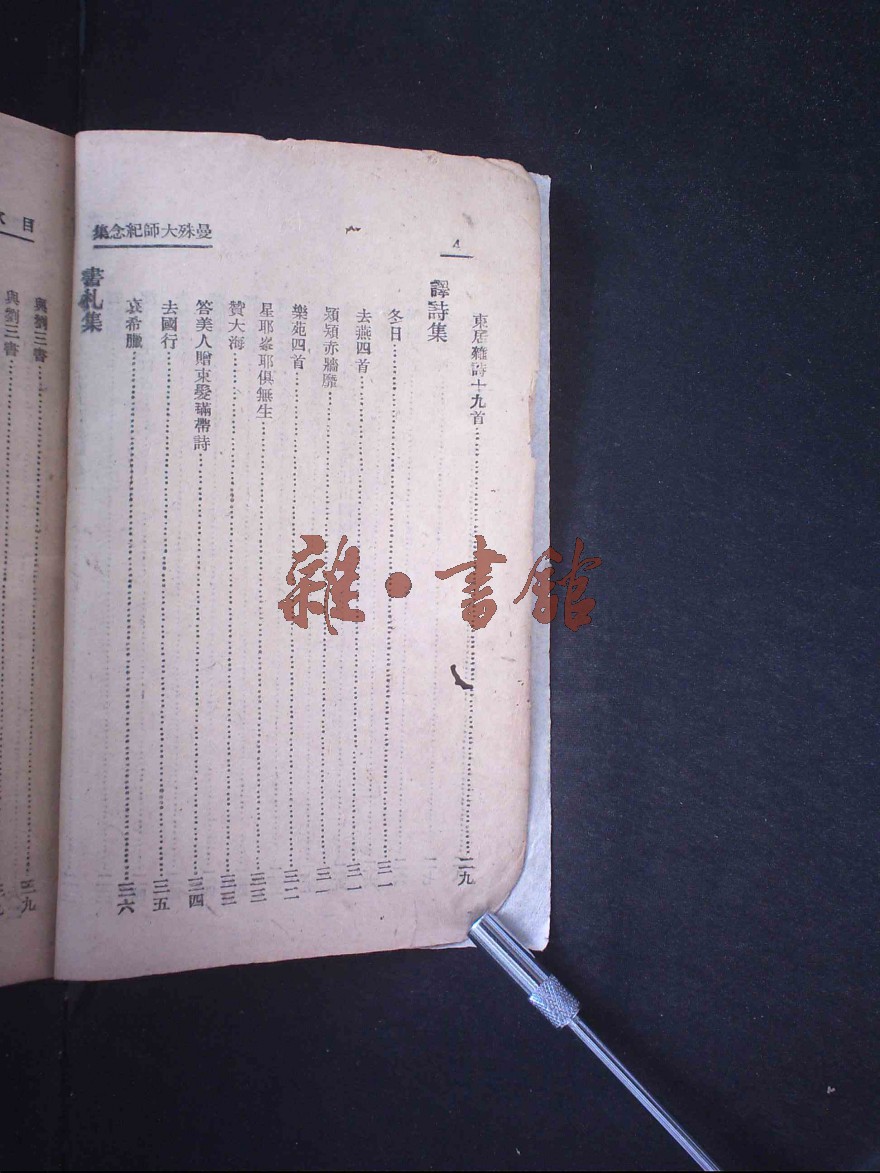 4
曼殊大師紀念集
東居雜詩十九首……二九
譯詩集
冬日……三一
去燕四首……三一
熲熲赤牆靡……三一
樂苑四首……三二
星耶峯耶俱無生……三三
贊大海……三三
答美人贈束髮𤩽帶詩……三四
去國行……三五
哀希臘……三六
書札集
目
與劉三書
與劉三書
雜·書館